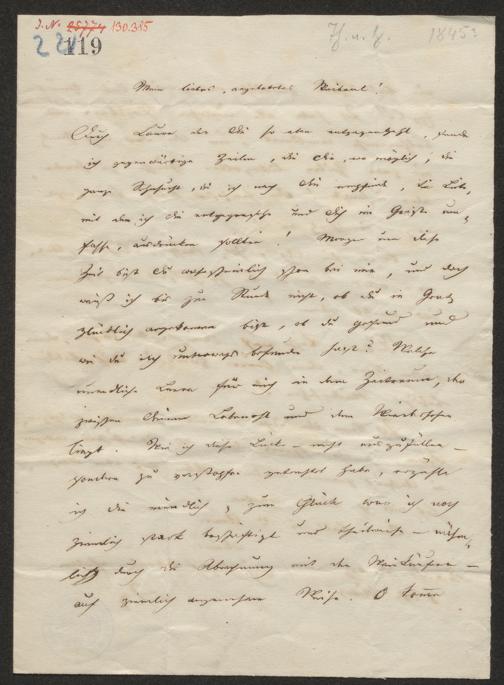 I. N. 25774 130.385
221 119
1845?
Mein liebes, angebetetes Weiberl!
Durch Laura, die Dir so eben entgegengeht, sende
ich gegenwärtige Zeilen, die Dir, wo möglich, die
ganze Sehnsucht, die ich nach Dir empfinde, die Liebe,
mit der ich Dir entgegensehe und Dich im Geiste um-
fasse, ausdrücken sollten! Morgen um diese
Zeit bist Du wahrscheinlich schon bei mir, und doch
weiß ich bis zur Stunde nicht, ob du in Gratz
glücklich angekommen bist, ob du gesund und
wie du dich unterwegs befunden hast? Welche
unendliche Leere für mich in dem Zeitraum, der
zwischen Deinem Lebewohl und dem Wiedersehen
liegt. Wie ich diese Lücke — nicht auszufüllen —
sondern zu verstopfen getrachtet habe, erzähle
ich Dir mündlich; zum Glück war ich noch
ziemlich stark beschäftigt und theilweise — nähm-
lich durch die Abrechnung mit den —
auf ziemlich angenehme Weise. O komm